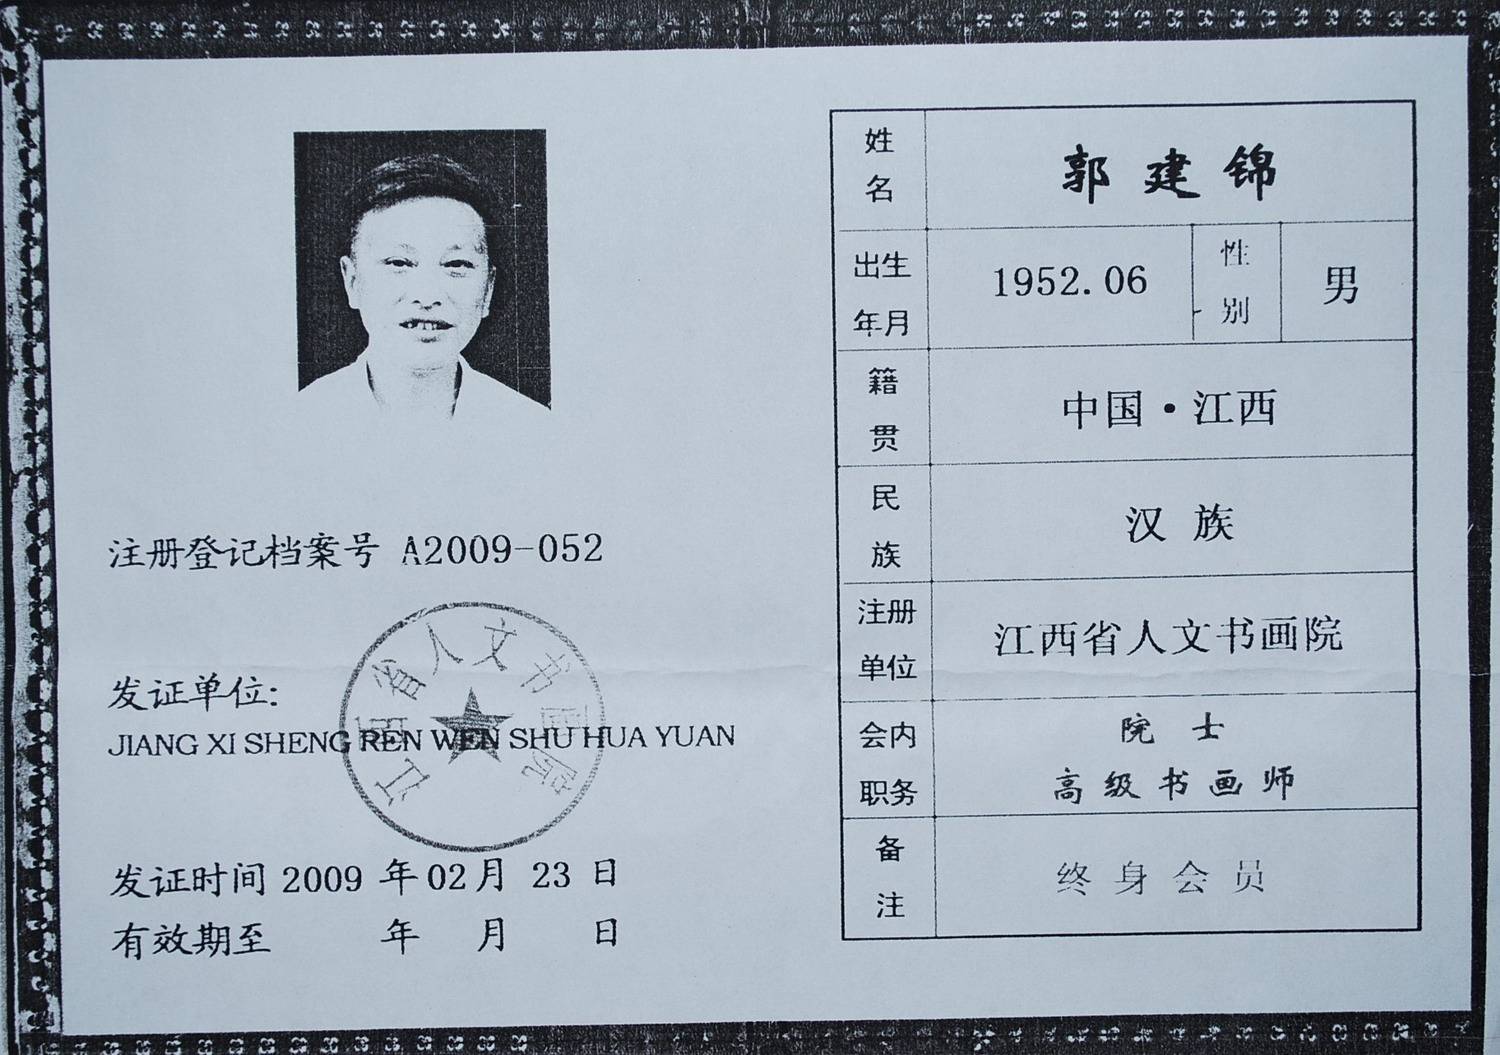 注册登记档案号 A2009-052
发证单位:
JIANG XI SHENG REN WEN SHU HUA YUAN
江西省人文书画院
发证时间 2009 年 02 月 23 日
有效期至 年 月 日
姓名 郭建锦
出生年月 1952.06 性别 男
籍贯 中国·江西
民族 汉族
注册单位 江西省人文书画院
会内职务 院士
高级书画师
备注 终身会员